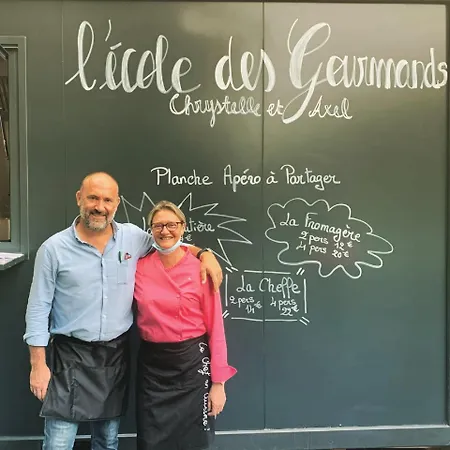 l'école des Gourmands
Chrystelle et Axel
Planche Apéro à Partager
La Fromagère
2 pers 12 €
4 pers 20 €
La Cheffe
2 pers
4 pers
22 €